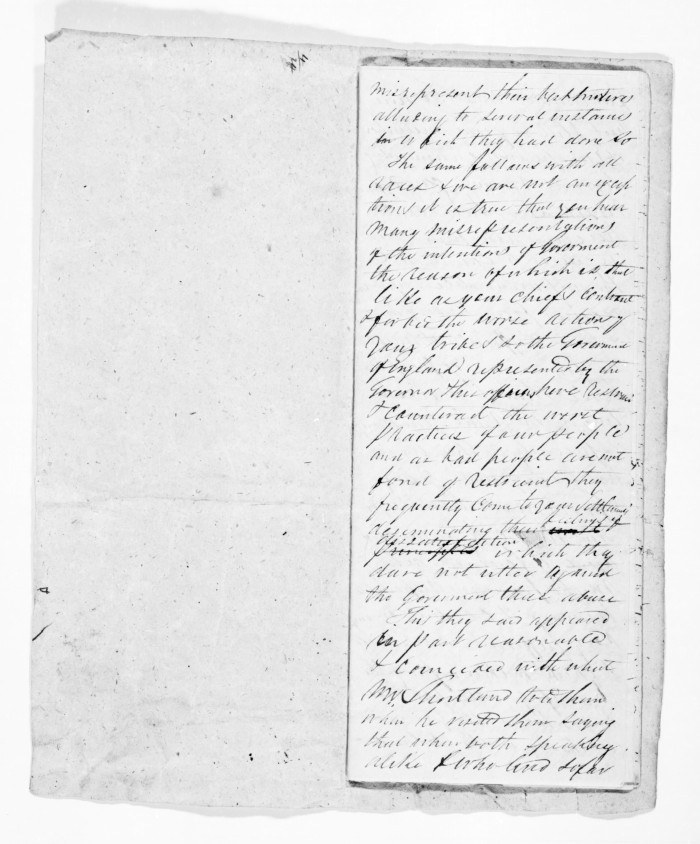 misrepresent their best motives
alluding to several instances
in which they had done so
The same follows with all
races & we are not an excep
tion, it is true that you hear
many misrepresentations
of the intentions of Government
the reason of which is, that
like as your chiefs
& forbid the worse actions of
your tribes so the Government
of England represented by the
Governor & his officers have restrain
& counteract the worst
practices of our people
and as bad people are not
fond of restraint they
frequently come to your settlements
desseminating their feelings of
dissatisfaction
in which they
dare not utter against
the Government their abuse
This they said appeared
in part reasonable
& coincided with what
Mr Shortland told them
when he visited them saying
that when both speaking
alike & who lived so far